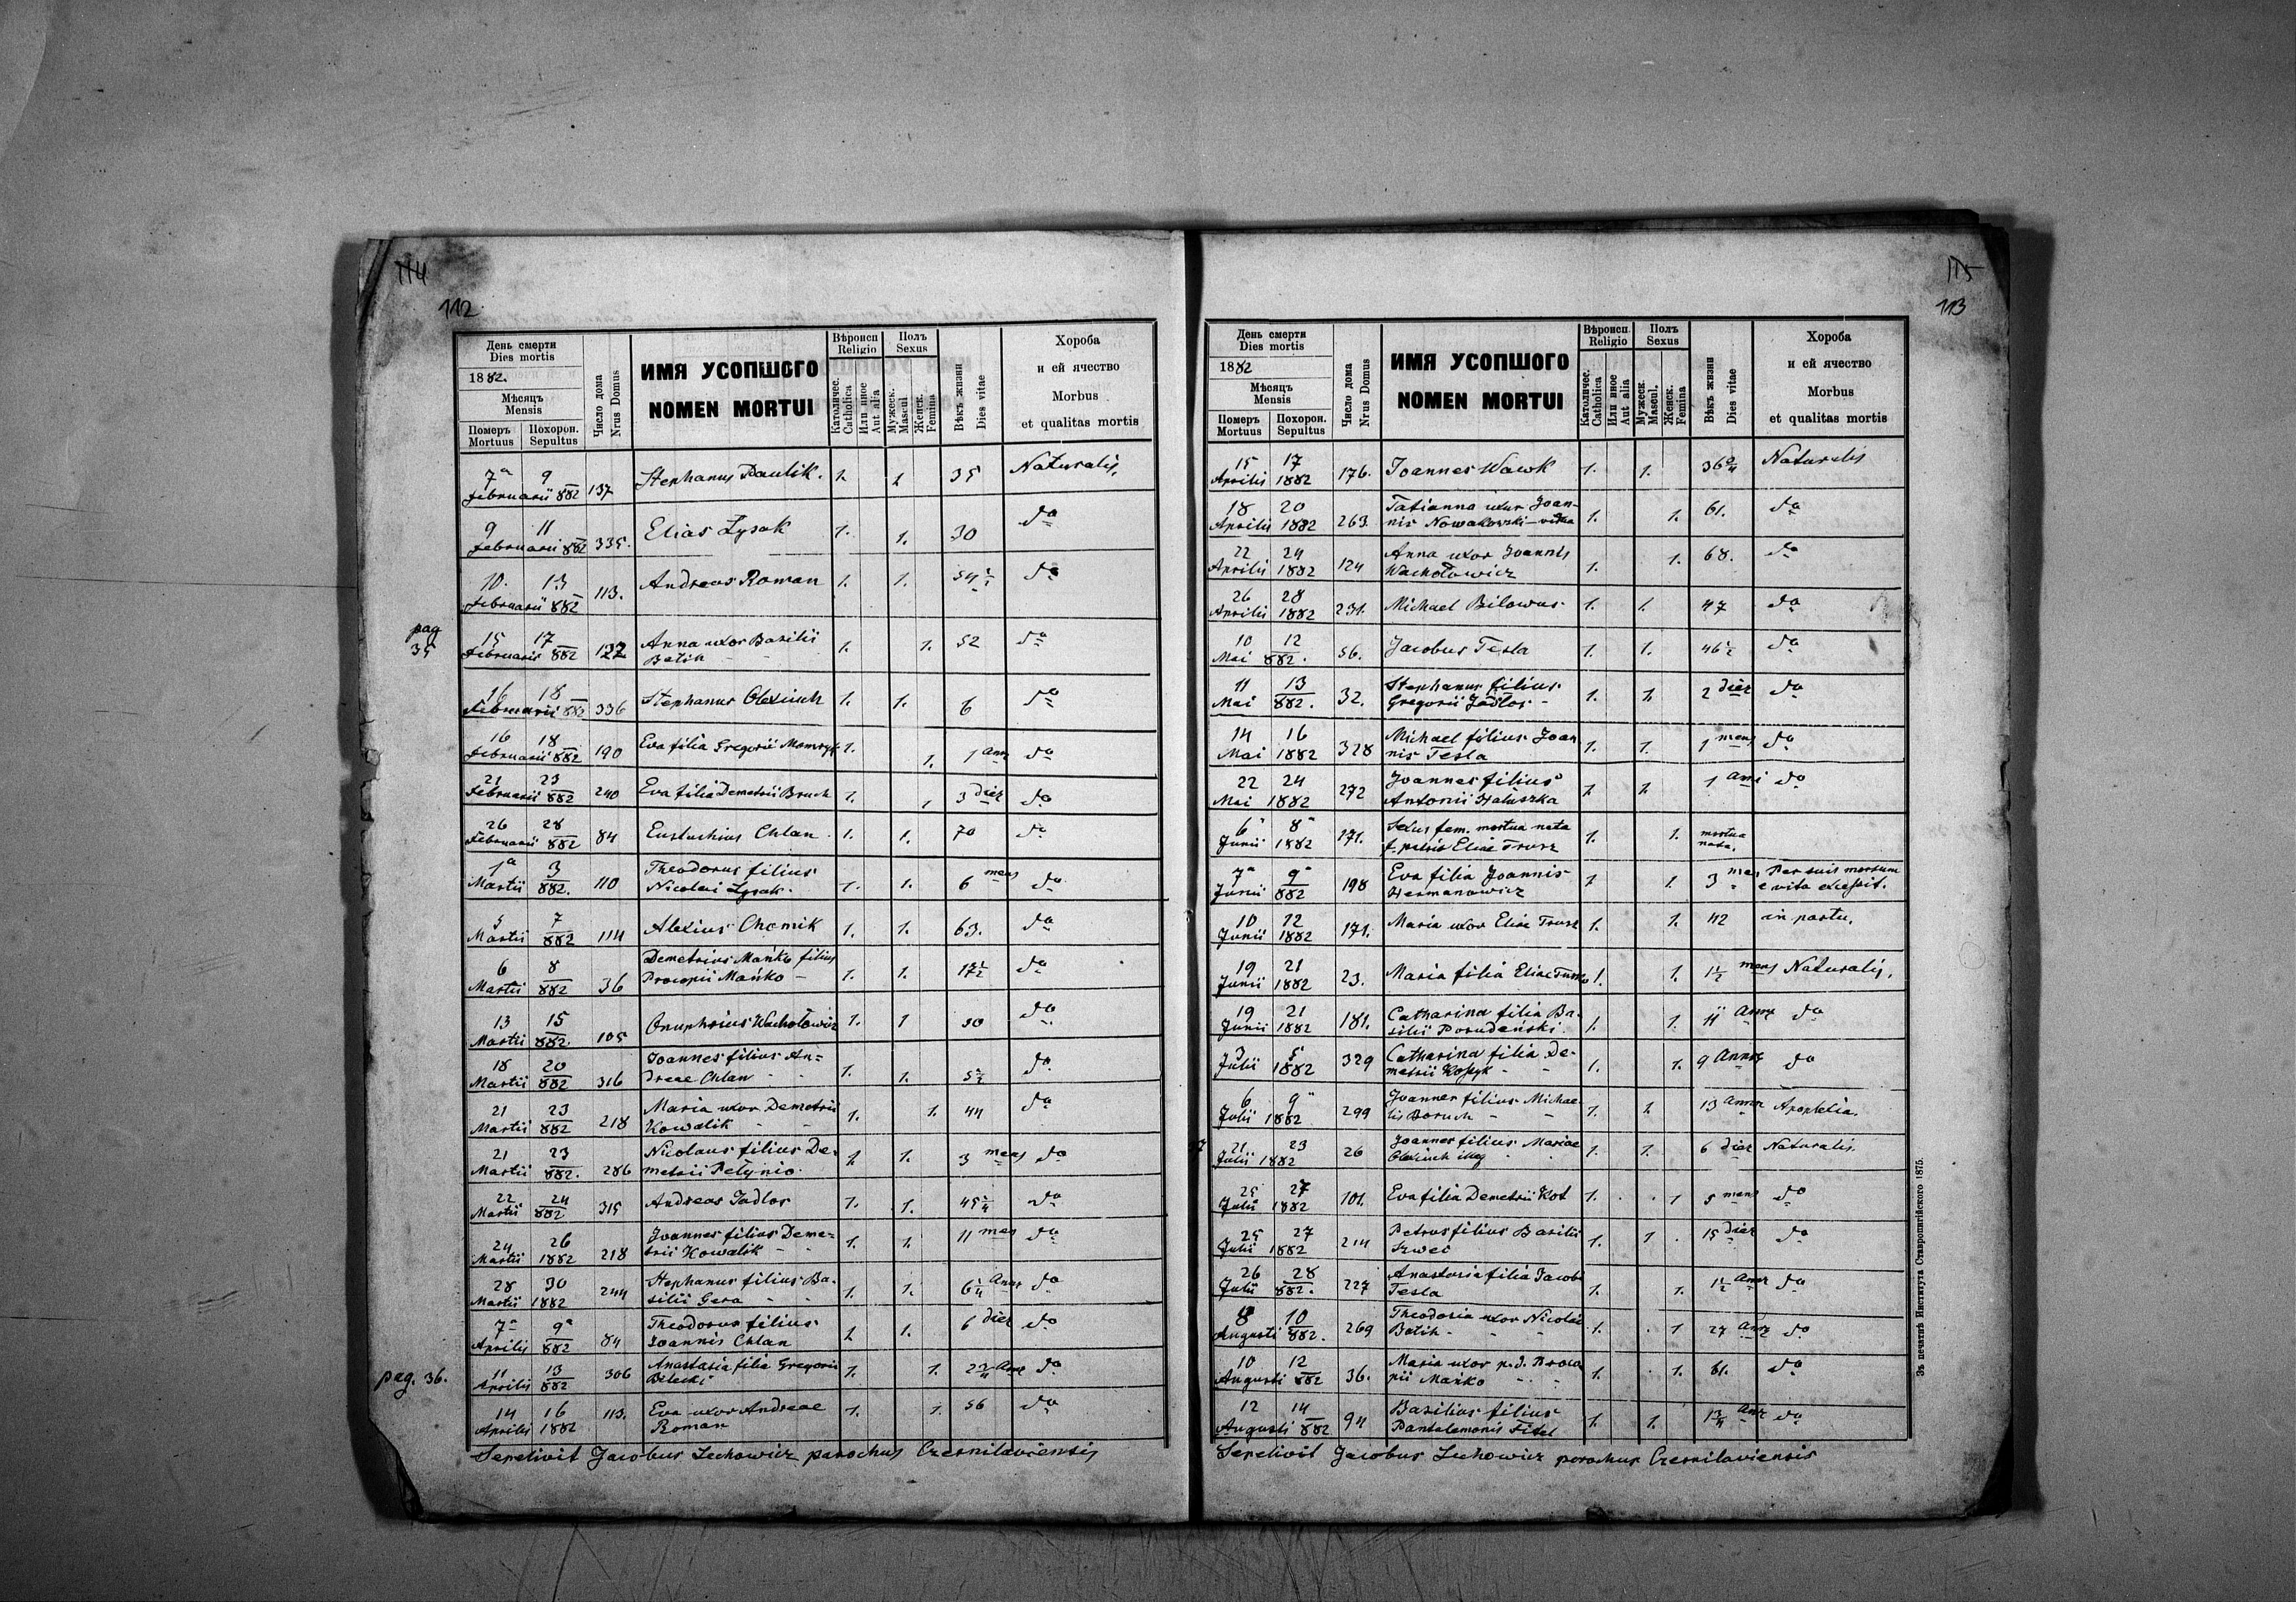 114
112
День смерти
Dies mortis
1882.
Мѣсяцъ
Mensis
Померъ Mortuus
Похорон. Sepultus
Число дома
Nrus Domus
ИМЯ УСОПШОГО
NOMEN MORTUI
Вѣроисп
Religio
Католичес. Catholica
Или иное Aut alia
Полъ
Sexus
Мужеск. Mascul
Женск. Femina
Вѣкъ жизни
Dies vitae
Хороба
и ей ячество
Morbus
et qualitas mortis
7a 9 137 Stephanus Paulik. 1. 1 35 Naturalis,
Februarii 882
9 11 335. Elias Łysak 1. 1. 30 do
Februarii 882
10. 13 113. Andreas Roman 1. 1. 54½ do
Februarii 882
pag 35
15 17 Anna uxor Basilii 1. 1. 52 do
Februarii 882 Batih
16 18 336 Stephanus Olexiuch 1. 1. 6 do
Februarii 882
16 18 190 Eva filia Gregorii 1. 1. 1 Ann do
Februarii 882
21 23 240 Eva filia Demetrii Bruch 1. 1 3 dier do
Februarii 882
26 28 84 Eustachius Chlan. 1. 1. 70 do
Februarii 882
1a 3 110 Theodorus filius 1. 1. 6 mens do
Martii 882. Nicolai Łysak.
5 7 114 Alexius Chomik 1. 1. 63. do
Martii 882
6 8 36 Demetrius Mańko filius 1. 1. 17½ do
Martii 882 Procopii Mańko
13 15 105 Onuphrius Wachołowicz 1. 1 30 do
Martii 882.
18 20 316 Joannes filius An= 1. 1. 5½ do
Martii 882 dreae Chlan
21 23 218 Maria uxor Demetrii 1. 1. 44 do
Martii 882 Kowalik
21 23 286 Nicolaus filius De- 1. 1. 3 mens do
Martii 882. metrii Petynio.
22 24 315 Andreas Jadlos 1. 1. 45¼ do
Martii 882
24 26 218 Joannes filius Deme- 1. 1. 11 mens do
Martii 1882 trii Kowalik
28 30 244 Stephanus filius Ba- 1. 1. 6¼ Annr do
Martii 1882 silii Gera
7a 9a 84 Theodorus filius 1. 1. 6 dier do
Aprilis 882 Joannis Chlan
pag. 36.
11 13 306 Anastasia filia Gregorii 1. 1. do
Aprilis 882 Bilecki
14 16 113. Eva uxor Andreae 1. 1. 56 do
Aprilis 1882 Roman
Sepelivit Jacobus Lechowicz parochus Czernilaviensis
115
113
День смерти
Dies mortis
1882
Мѣсяцъ
Mensis
Померъ Mortuus
Похорон. Sepultus
Число дома
Nrus Domus
ИМЯ УСОПШОГО
NOMEN MORTUI
Вѣроисп.
Religio
Католичес. Catholica
Или иное Aut alia
Полъ
Sexus
Мужеск. Mascul.
Женск. Femina
Вѣкъ жизни
Dies vitae
Хороба
и ей ячество
Morbus
et qualitas mortis
15 17 176. Joannes Wawk 1. 1. 36¾ Naturalis
Aprilis 1882
18 20 263. Tatianna uxor Joan- 1. 1. 61. do
Aprilis 1882 nis Nowakowski - vidua
22 24 124 Anna uxor Joannis 1. 1. 68. do
Aprilis 1882 Wachołowicz
26 28 231. Michael Bilowus 1. 1. 47 do
Aprilis 1882
10 12 56. Jacobus Tesla 1. 1. 46½ do
Mai 882.
11 13 32. Stephanus filius 1. 1. 2 dier do
Mai 882. Gregorii Jadlos
14 16 328 Michael filius Joan 1. 1. 1 mens do
Mai 1882 nis Tesla
22 24 272 Joannes filius 1. 1. 1 Anni do
Mai 1882 Antonii Haluszka
6a 8a 171. Sexus fem. mortua nata 1. 1. mortua nata.
Junii 1882 f. patris Eliae Trusz
7a 9a 198 Eva filia Joannis 1 1. 3 mens Per suis mortum
Junii 882 Hermanowicz e vita excessit.
10 12 171. Maria uxor Eliae Trusz 1. 1. 42 in partu.
Junii 1882
19 21 23. Maria filia Eliae 1. 1. 1½ mens Naturalis.
Junii 1882
19 21 181. Catharina filia Ba- 1. 1. 11 Annr do
Junii 1882 silii Porudeński.
3 5 329 Catharina filia De- 1. 1. 9 Annor do
Julii 1882 metrii
6 9 299 Joannes filius Michae- 1. 1. 13 annor Apoplexia.
Julii 1882 lis Boruch
21 23 26 Joannes filius Mariae 1. 1. 6 dier Naturalis.
Julii 1882 Olexiuch illeg
25 27 101. Eva filia Demetrii Kot 1. 1 5 mens do
Julii 1882
25 27 214 Petrus filius Basilii 1. 1 15 dier do
Julii 1882 Szwec
26 28 227 Anastasia filia Jacobi 1. 1. 1½ Annr do
Julii 882. Tesla
8 10 269 Theodosia uxor Nicolai 1. 1 27 Annr do
Augusti 882. Batih
10 12 36. Maria uxor p.d. Proco 1. 1. 61. do
Augusti 882 pii Mańko
12 14 94 Basilius filius 1. 1. 1¾ Anr do
Augusti 882 Pantalemonis Fitel
Sepelivit Jacobus Lechowicz parochus Czernilaviensis
Зъ печатнѣ Института Ставропигійского 1875.